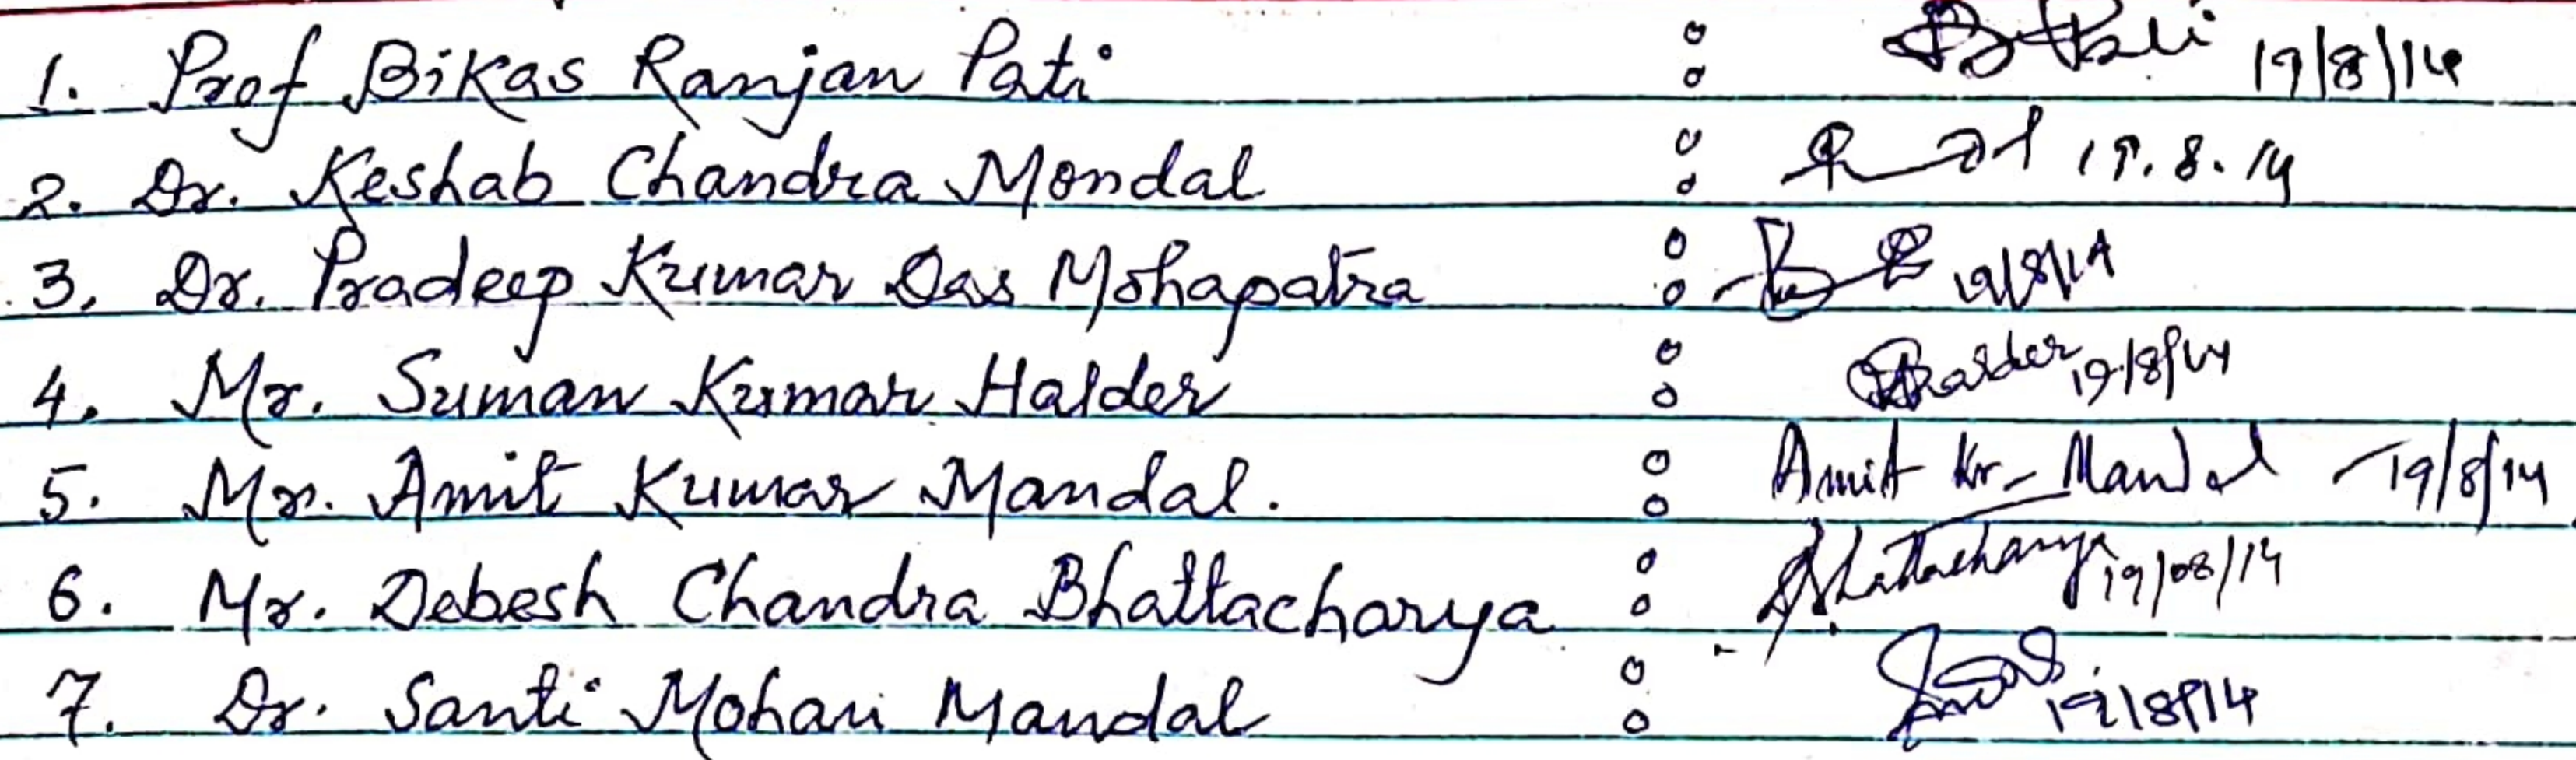 1. Prof Bikas Ranjan Pati : 19/8/14
2. Dr. Keshab Chandra Mondal : 19.8.14
3. Dr. Pradeep Kumar Das Mohapatra : 19/8/14
4. Mr. Suman Kumar Halder : Halder 19/8/14
5. Mr. Amit Kumar Mandal. : Amit Kr. Mandal 19/8/14
6. Mr. Debesh Chandra Bhattacharya : Bhattacharya 19/08/14
7. Dr. Santi Mohan Mandal : 19/8/14